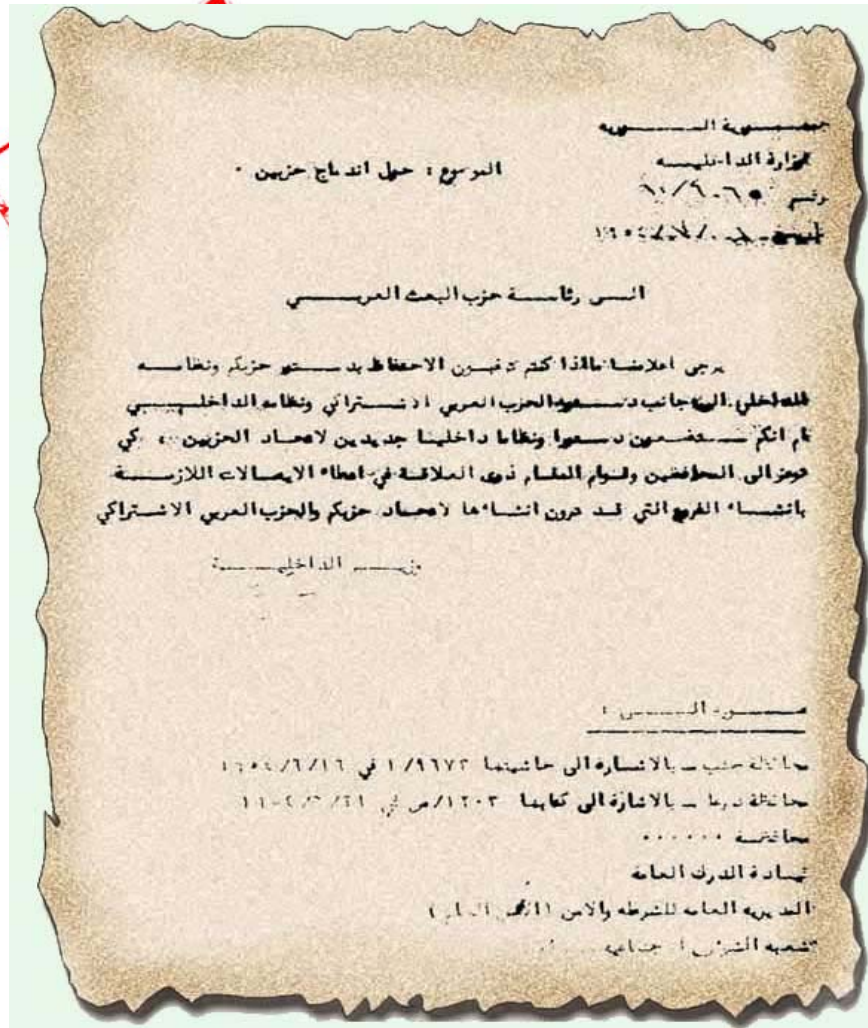 جمهورية السورية
وزارة الداخلية
الموضوع : حول اندماج حزبين ·
رقم
الى رئاسة حزب البعث العربي
يرجى اعلامنا ما اذا كنتم تودون الاحتفاظ بدستور حزبكم ونظامه
الداخلي الى جانب دستور الحزب العربي الاشتراكي ونظامه الداخلي
ام انكم ستضعون دستورا ونظاما داخليا جديدين لاتحاد الحزبين ، كي
نوعز الى المحافظين وقوام المقام ذوى العلاقة في اعطاء الايصالات اللازمة
بانشاء الفروع التي قد ترون انشاءها لاتحاد حزبكم والحزب العربي الاشتراكي
وزير الداخلية
صور الى :
محافظة حلب ـ بالاشارة الى حاشيتها ١/٩٦٧٢ في
محافظة درعا ـ بالاشارة الى كتابها ١٢٠٣/ص في
محافظة ٠٠٠٠٠٠
قيادة الدرك العامة
المديرية العامة للشرطه والامن